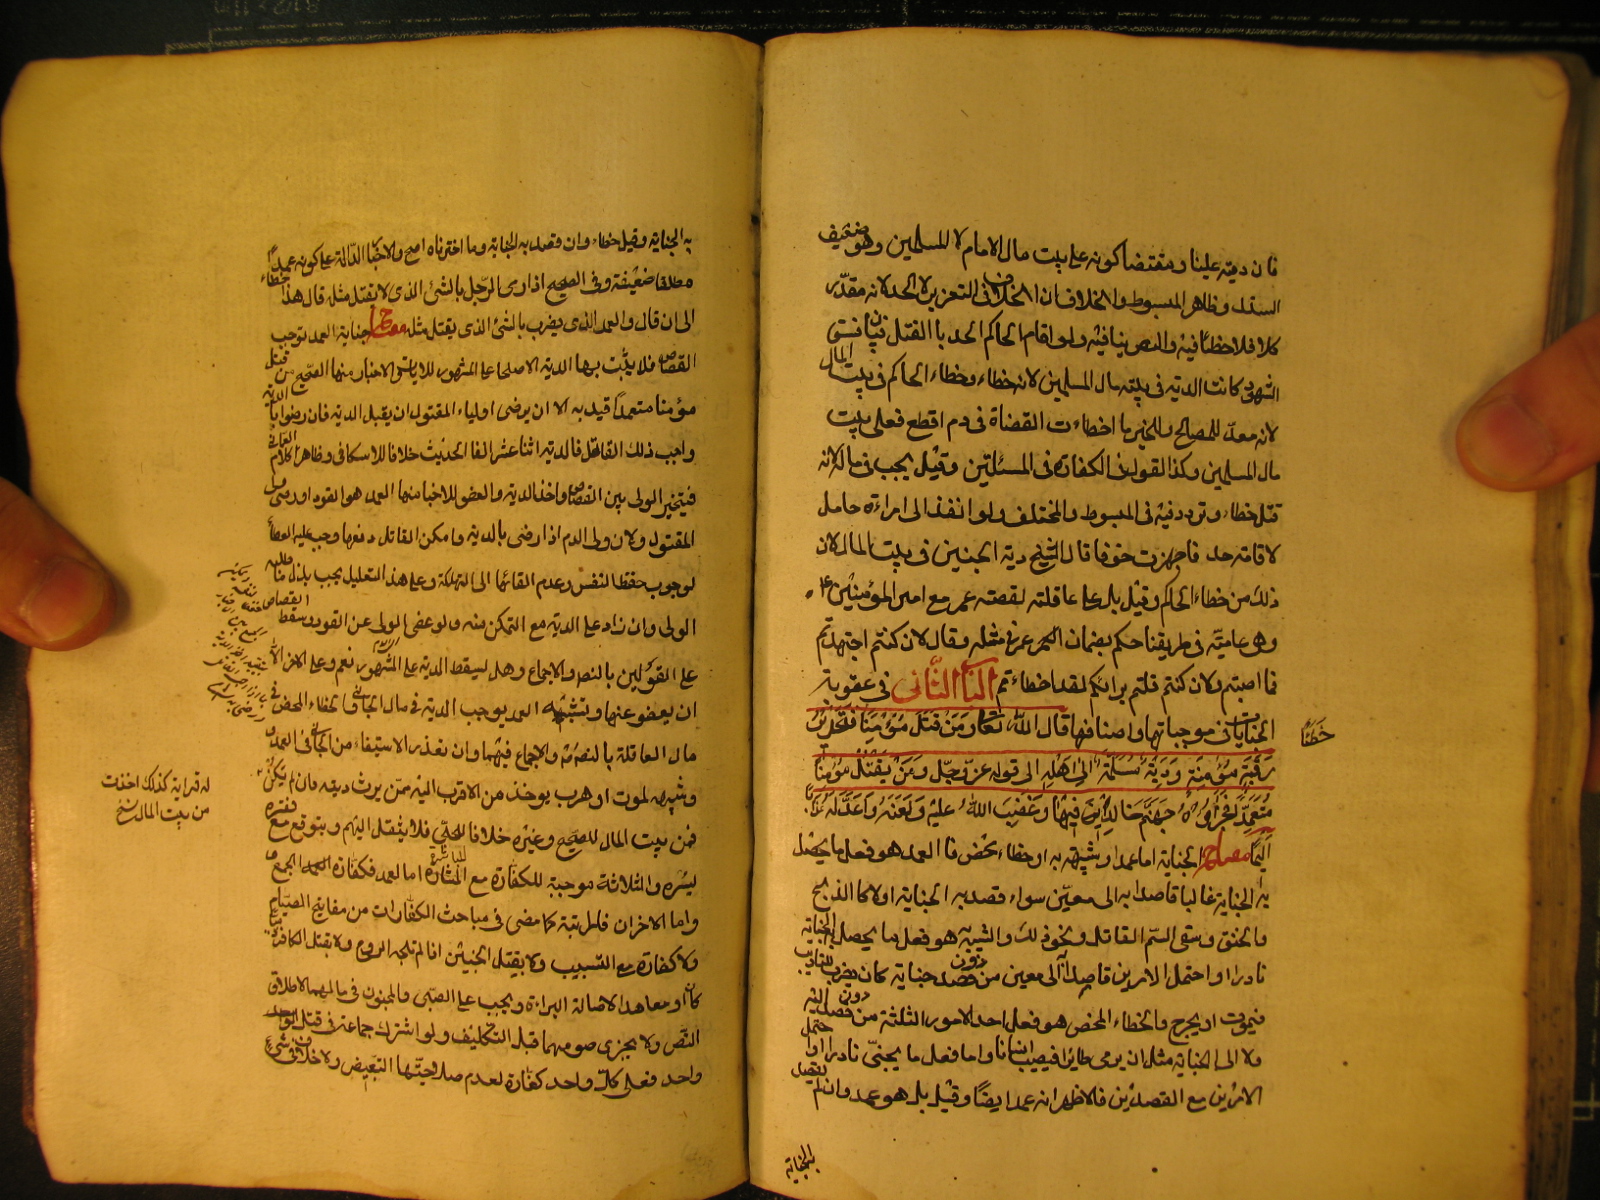 فان ديته علينا ومقتضاه كونه على بيت مال الامام لا المسلمين وهو ضعيف
السند وظاهر المبسوط والخلاف ان الخلاف في التعزير لا الحد لانه مقدّر
كلا فلا خطأ فيه والنص ينافيه ولو اقام الحاكم الحد بالقتل فبان فسق
الشهود كانت الدية في بيت مال المسلمين لانه خطاء وخطاء الحاكم في بيت المال
لانه معدّ للمصالح وللخبر ما اخطاءت القضاة في دم او قطع فعلى بيت
مال المسلمين وكذا القول في الكفارة في المسئلتين وقيل يجب في ماله لانه
قتل خطاء وتردد فيه في المبسوط والمختلف ولو انفذ الى امراءة حامل
لاقامة حد فاجهزت خوفا قال الشيخ دية الجنين في بيت المال لان
ذلك من خطاء الحاكم وقيل بل على عاقلته لقصة عمر مع امير المؤمنين ع
وهو عامية في طريقنا حكم بضمان عمر في مثله وقال لان كنتم اجتهدتم
فما اصبتم ولان كنتم قلتم برائكم لقد اخطاءتم الباب الثاني في عقوبة
الجنايات في موجباتها واصنافها قال الله تعالى ومن قتل مؤمنا فتحرير
خَطَئًا
رقبة مؤمنة ودية مسلمة الى اهله الى قوله عز وجل ومن يقتل مؤمنا
متعمدا فجزاؤه جهنم خالدا فيها وغضب الله عليه ولعنه واعد له عذابا
اليما مفتاح الجناية اما عمد او شبيه به او خطاء محض فالعمد هو فعل ما يحصل
به الجناية غالبا قاصدا به الى معيّن سواء قصد به الجناية اولا كالذبح
والخنق وسقي السّم القاتل ونحو ذلك والشبيه هو فعل ما يحصل به الجناية
نادرا او احتمل الامرين قاصدا الى معين من دون قصد جناية كان يضرب للتاديب
فيموت او يجرح والخطاء المحض هو فعل احد الامور الثلثة من دون قصد اليه
ولا الى الجناية مثل ان يرمي طائرا فيصيب انسانا واما فعل ما يجنى نادرا او احتمل
الامرين مع القصدين فالاظهر انه عمد ايضا وقيل بل هو عمد وان لم يقصد
به الجناية وقيل خطاء وان قصد به الجناية وما اخترناه اصح والاخبار الدالة على كونه عمدا
مطلقا ضعيفة وفي الصحيح اذا رمى الرجل بالشئ الذي لا يقتل مثله قال هذا خطاء
الى ان قال والعمد الذي يضرب بالشئ الذي يقتل مثله مفتاح جناية العمد توجب
القصاص فلا يثبت بها الدية الا صلحا على المشهور للايات والاخبار منها الصحيح من قتل
مؤمنا متعمدا قيد به الا ان يرضى اولياء المقتول ان يقبل الدية فان رضوا بالدية
واحب ذلك القاتل فالدية اثنا عشر الفا الحديث خلافا للاسكافي وظاهر كلام العماني
فيتخير الولي بين القصاص واخذ الدية والعفو للاخبار منها العمد هو القود او رضى ولي
المقتول ولان ولي الدم اذا رضى بالدية وامكن القاتل دفعها وجب عليه العطاء
لوجوب حفظ النفس وعدم القائها الى التهلكة وعلى هذا التعليل يجب بذل ما طلبه
الولي وان زاد على الدية مع التمكن منه ولو عفى الولي عن القود وسقط القصاص
على القولين بالنص والاجماع وهل يسقط الدية على المشهور نعم وعلى الاخر لا الا
ان يعفو عنها وشبيه العمد يوجب الدية في مال الجاني والخطاء المحض في
مال العاقلة بالنص والاجماع فيهما وان تعذر الاستيفاء من الجاني في العمد
وشبيهه لموت او هرب يوخذ من الاقرب اليه ممن يرث ديته فان لم يكن
فمن بيت المال للصحيح وغيره خلافا للحلي فلا ينتقل اليهم ويتوقع مع فقره
له قرابة كذلك اخذت
من بيت المال نسخ
يسره والثلاثة موجبة للكفارة مع المباشرة اما العمد فكفارة الجمع
واما الاخران فالمرتبة كما مضى في مباحث الكفارات من مفاتيح الصيام
ولا كفارة مع التسبيب ولا بقتل الجنين اذا لم تلجه الروح ولا بقتل الكافر
كان او معاهدا لاصالة البراءة ويجب على الصبي والمجنون في مالهما لاطلاق
النص ولا يجزي صومهما قبل التكليف ولو اشترك جماعة في قتل الواحد
واحد فعلى كل واحد كفارة لعدم صلاحيتها التبعيض ولا خلاف في شيء
به الجناية